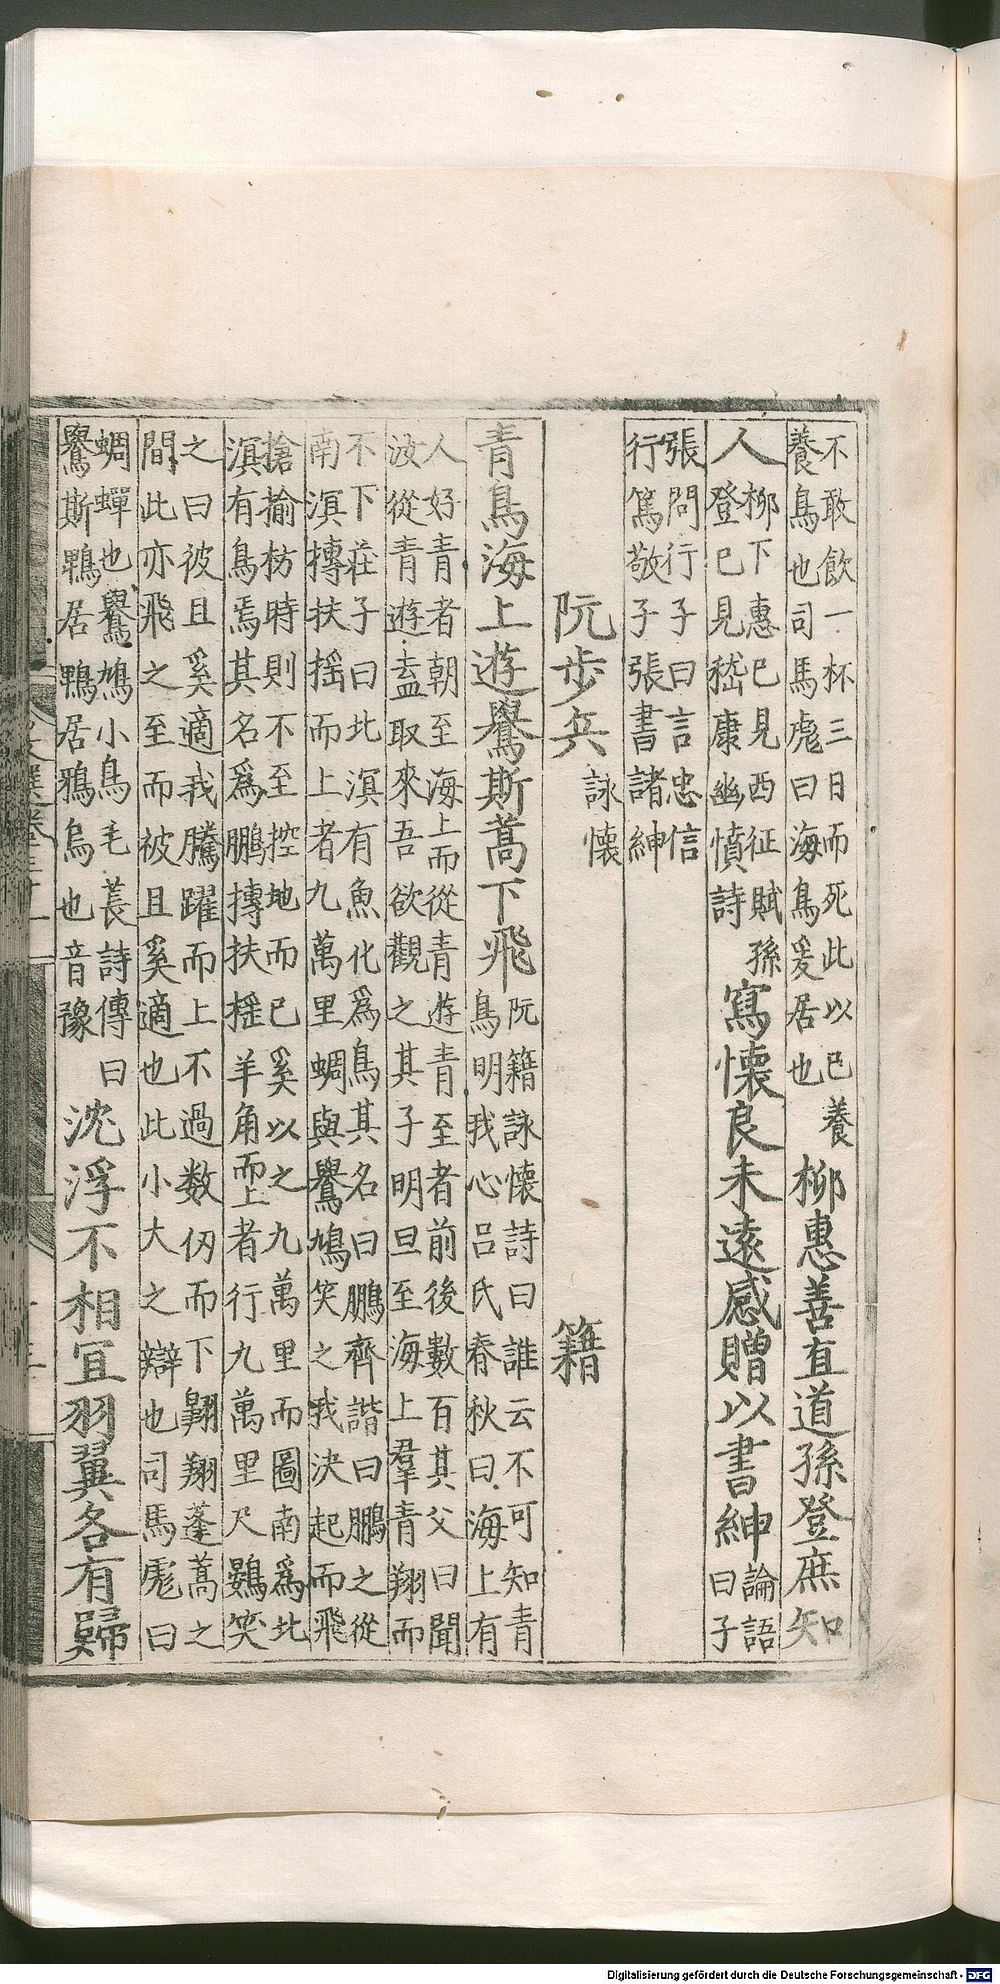 不敢飲一杯三日而死此以已養
養鳥也司馬彪曰海鳥爰居也
柳惠善直道孫登庶知
人
柳下惠已見西征賦孫
登已見嵇康幽憤詩
寫懷良未遠感贈以書紳
論語
曰子
張問行子曰言忠信
行篤敬子張書諸紳
阮步兵 詠懷 籍
青鳥海上遊鸒斯蒿下飛
阮籍詠懷詩曰誰云不可知青
鳥明我心呂氏春秋曰海上有
人好青者朝至海上而從青遊青至者前後數百其父曰聞
汝從青遊盍取來吾欲觀之其子明旦至海上羣青翔而
不下莊子曰北溟有魚化爲鳥其名曰鵬齊諧曰鵬之從
南溟摶扶搖而上者九萬里蜩與鸒鳩笑之我決起而飛
搶揄枋時則不至控地而已奚以之九萬里而圖南爲北
溟有鳥焉其名爲鵬摶扶搖羊角而上者行九萬里尺鷃笑
之曰彼且奚適我騰躍而上不過数仞而下翱翔蓬蒿之
間此亦飛之至而被且奚適也此小大之辯也司馬彪曰
蜩蟬也鸒鳩小鳥毛萇詩傳曰
鸒斯鵯居鵯居鴉烏也音豫
沈浮不相宜羽翼各有歸
Digitalisierung gefördert durch die Deutsche Forschungsgemeinschaft - DFG